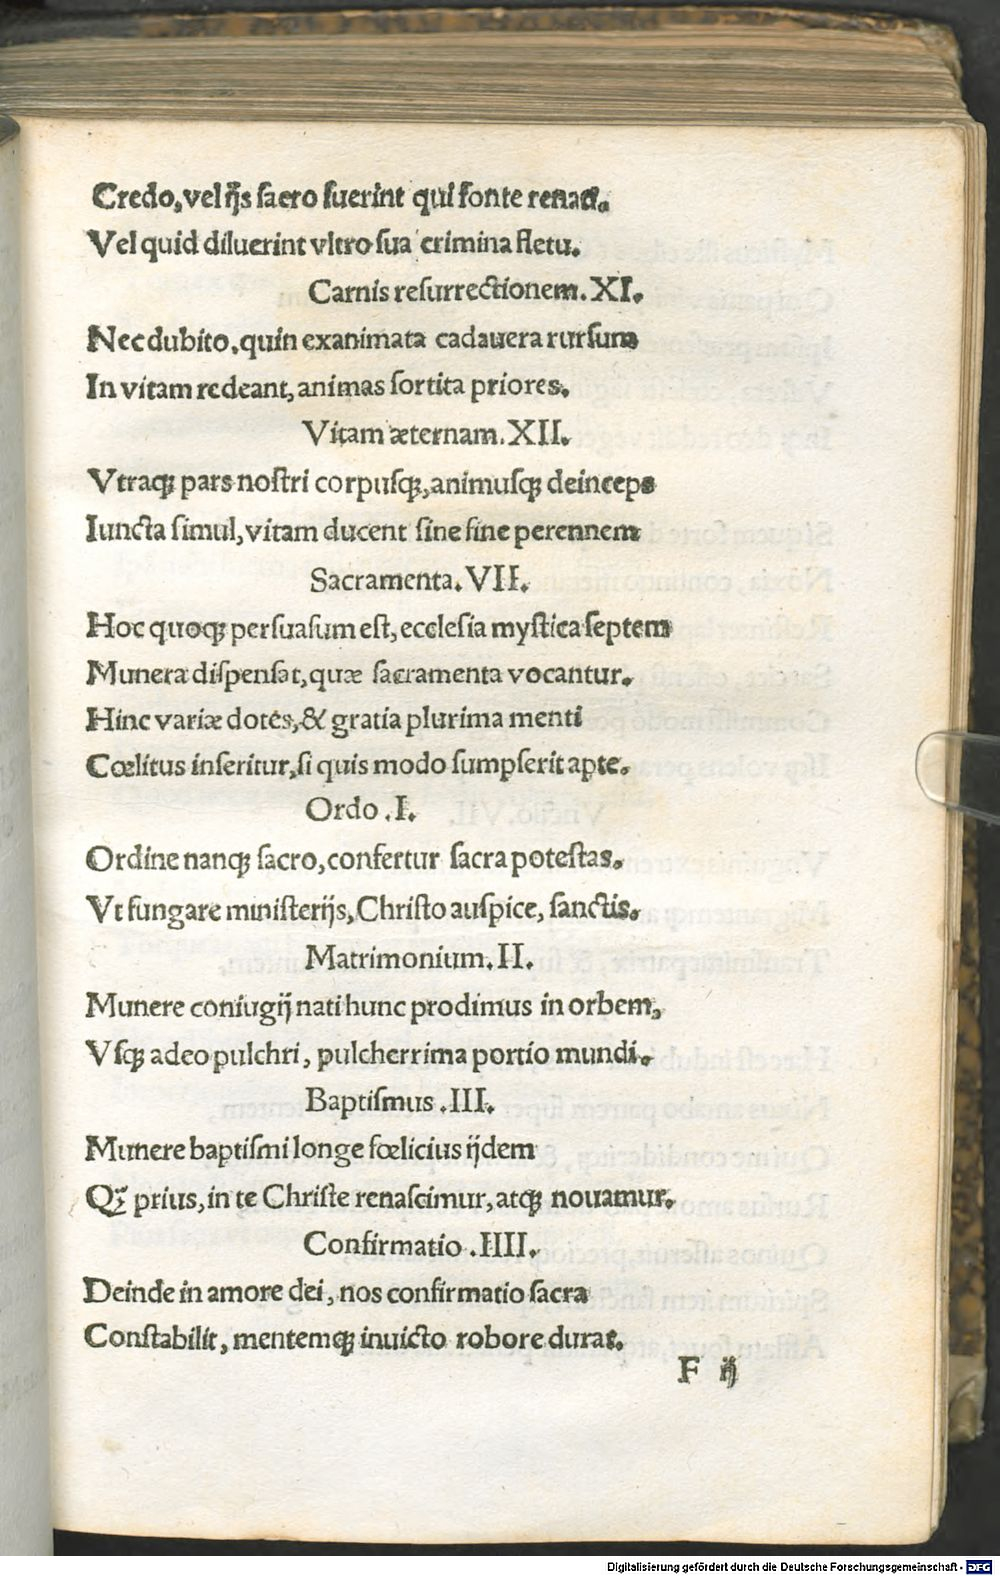 Credo, vel ijs sacro fuerint qui fonte renati.
Vel quid diluerint vltro sua crimina fletu.
Carnis resurrectionem. XI.
Nec dubito, quin exanimata cadauera rursum
In vitam redeant, animas sortita priores.
Vitam æternam. XII.
Vtraqꝫ pars nostri corpusqꝫ, animusqꝫ deinceps
Iuncta simul, vitam ducent sine fine perennem
Sacramenta. VII.
Hoc quoqꝫ persuasum est, ecclesia mystica septem
Munera dispensat, quæ sacramenta vocantur.
Hinc variæ dotes, & gratia plurima menti
Cœlitus inseritur, si quis modo sumpserit apte.
Ordo .I.
Ordine nanqꝫ sacro, confertur sacra potestas.
Vt fungare ministerijs, Christo auspice, sanctis.
Matrimonium. II.
Munere coniugij nati hunc prodimus in orbem,
Vsqꝫ adeo pulchri, pulcherrima portio mundi.
Baptismus .III.
Munere baptismi longe fœlicius ijdem
Qꝫ̃ prius, in te Christe renascimur, atqꝫ nouamur.
Confirmatio .IIII.
Deinde in amore dei, nos confirmatio sacra
Constabilit, mentemqꝫ inuicto robore durat.
F ij
Digitalisierung gefördert durch die Deutsche Forschungsgemeinschaft - DFG